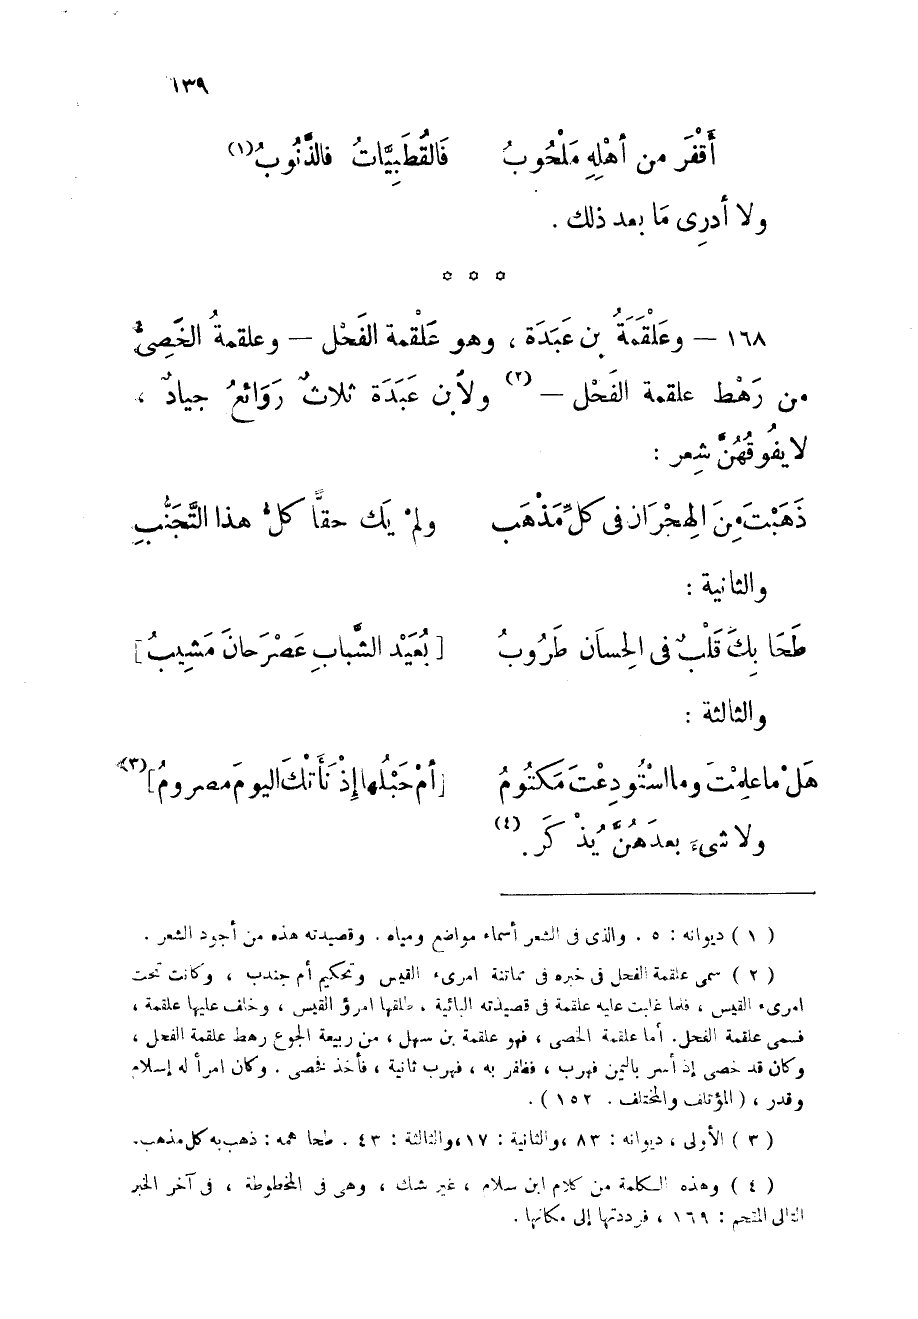 ١٣٩
أَقْفَرَ من أهْلِهِ مَلْحُوبُ فَالقُطَبِيَّاتُ فالذَّنُوبُ (١)
ولا أدرِى مَا بعد ذلك .
* * *
١٦٨ — وعَلْقَمَةُ بن عَبَدَة ، وهو عَلْقمة الفَحْل — وعلقمةُ الخَصِىُّ
من رَهْط علقمة الفَحْل — (٢) ولأبن عَبَدَة ثلاثٌ رَوَائعُ جيادٌ ،
لا يفُوقُهُنَّ شِعر :
ذَهَبْتَ مِنَ الهِجْرَانِ فى كلِّ مَذْهَب ولمْ يَك حقًّا كلُّ هذا التَّجَنُّبِ
والثانية :
طَحَا بِكَ قَلْبٌ فى الحِسَان طَرُوبُ [ بُعَيْد الشَّبابِ عَصْرَ حانَ مَشِيبُ ]
والثالثة :
هَلْ ما علِمْتَ وما اسْتُودِعْتَ مَكتومُ [ أمْ حَبْلُها إذْ نَأَتْكَ اليومَ مصرومُ ] (٣)
ولا شىءَ بعدَهُنَّ يُذْكَر . (٤)
( ١ ) ديوانه : ٥ . والذى فى الشعر أسماء مواضع ومياه . وقصيدته هذه من أجود الشعر .
( ٢ ) سمى علقمة الفحل فى خبره فى مماتنة امرىء القيس وتحكيم أم جندب ، وكانت تحت
امرىء القيس ، فلما غلبت عليه علقمة فى قصيدته البائية ، طلقها امرؤ القيس ، وخلف عليها علقمة ،
فسمى علقمة الفحل . أما علقمة الخصى ، فهو علقمة بن سهل ، من ربيعة الجوع رهط علقمة الفحل ،
وكان قد خصى إذ أسر باليمن فهرب ، فظفر به ، فهرب ثانية ، فأخذ فخصى . وكان امرأ له إسلام
وقدر ، ( المؤتلف والمختلف . ١٥٢ ) .
( ٣ ) الأولى ، ديوانه : ٨٣ ، والثانية : ١٧ ، والثالثة : ٤٣ . طحا همه : ذهب به كل مذهب .
( ٤ ) وهذه الكلمة من كلام ابن سلام ، غير شك ، وهى فى المخطوطة ، فى آخر الخبر
التالى المقحم : ١٦٩ ، فرددتها إلى مكانها .